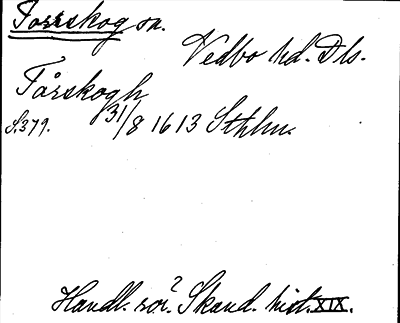 Torrskog sn.
Vedbo hd. Dls.
Tårskogh
S.379. 31/8 1613 Sthlm.
Handl. rör? Skand. hist. XIX.